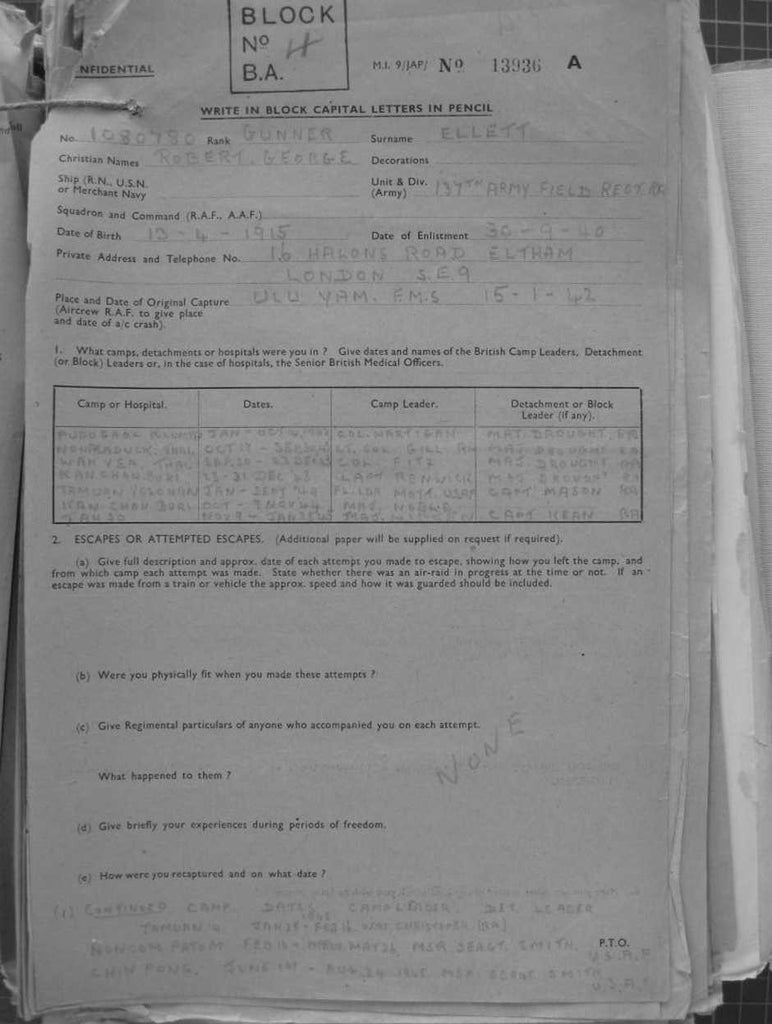 BLOCK
Nº H
B.A.
NFIDENTIAL
M.I. 9/JAP/ Nº 13936 A
WRITE IN BLOCK CAPITAL LETTERS IN PENCIL
No. 1080780 Rank GUNNER Surname ELLETT
Christian Names ROBERT. GEORGE Decorations
Ship (R.N., U.S.N. or Merchant Navy
Unit & Div. (Army) 137TH ARMY FIELD REGT. RA
Squadron and Command (R.A.F., A.A.F.)
Date of Birth 13-4-1915 Date of Enlistment 30-9-40
Private Address and Telephone No. 16 HALONS ROAD ELTHAM
LONDON S.E.9
Place and Date of Original Capture ULU YAM. F.M.S 15-1-42
(Aircrew R.A.F. to give place
and date of a/c crash).
1. What camps, detachments or hospitals were you in ? Give dates and names of the British Camp Leaders, Detachment
(or Block) Leaders or, in the case of hospitals, the Senior British Medical Officers.
Camp or Hospital. Dates. Camp Leader. Detachment or Block Leader (if any).
JAN - OCT COL. HARTIGAN MAJ. DROUGHT. RA
OCT 17 - LT. COL. GILL RA MAJ DROUGHT RA
COL. FITZ MAJ DROUGHT RA
KANCHANBURI 23-31 DEC 43 CAPT RENWICK MAJ DROUGHT RA
TAMUAN JAN - SEPT 44 CAPT MASON RA
KAN CHAN BURI OCT - MAJ. CAPT KEAN RA
2. ESCAPES OR ATTEMPTED ESCAPES. (Additional paper will be supplied on request if required).
(a) Give full description and approx. date of each attempt you made to escape, showing how you left the camp, and
from which camp each attempt was made. State whether there was an air-raid in progress at the time or not. If an
escape was made from a train or vehicle the approx. speed and how it was guarded should be included.
(b) Were you physically fit when you made these attempts ?
(c) Give Regimental particulars of anyone who accompanied you on each attempt.
NONE
What happened to them ?
(d) Give briefly your experiences during periods of freedom.
(e) How were you recaptured and on what date ?
(1) CONTINUED CAMP. DATES CAMP LEADER. DET. LEADER
TAMUAN JAN 28 - FEB 16 CHRISTOPHER (RA)
FEB 16 - MAY 26 MSR SERGT. SMITH. U.S.A.F
P.T.O.
CHIN FONG. JUNE 1ST - AUG 24 1945 MSR SERGT SMITH U.S.A.F